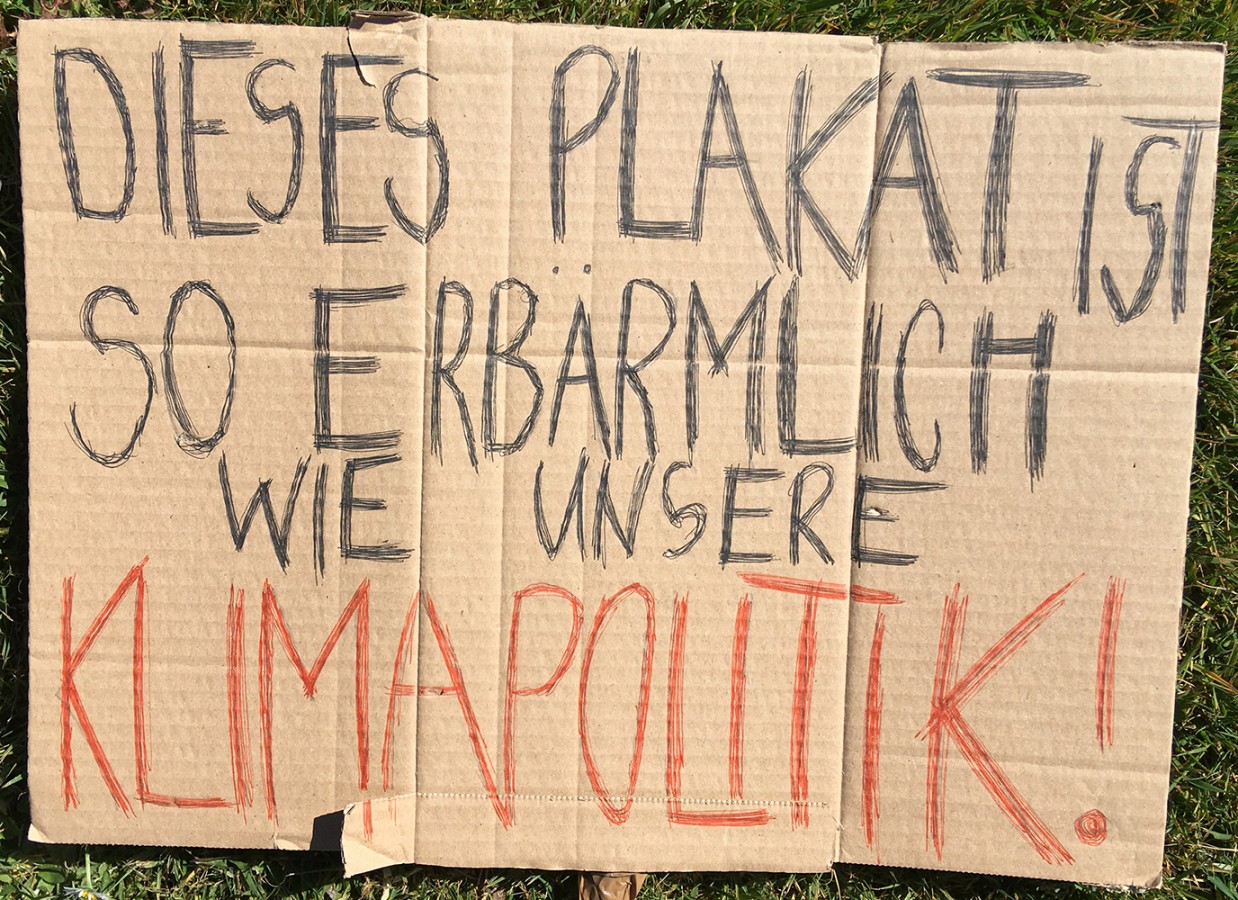 DIESES PLAKAT IST
SO ERBÄRMLICH
WIE UNSERE
KLIMAPOLITIK!